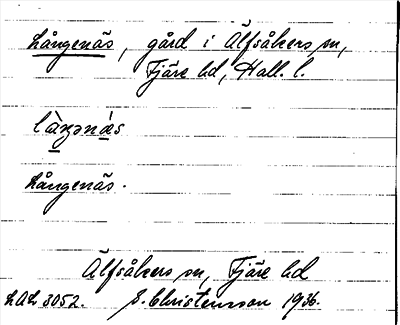 Långenäs, gård i Älfsåkers sn,
Fjäre hd, Hall. l.
Långenäs.
Älfsåkers sn, Fjäre hd
LAL 3052. S. Christensson 1936.